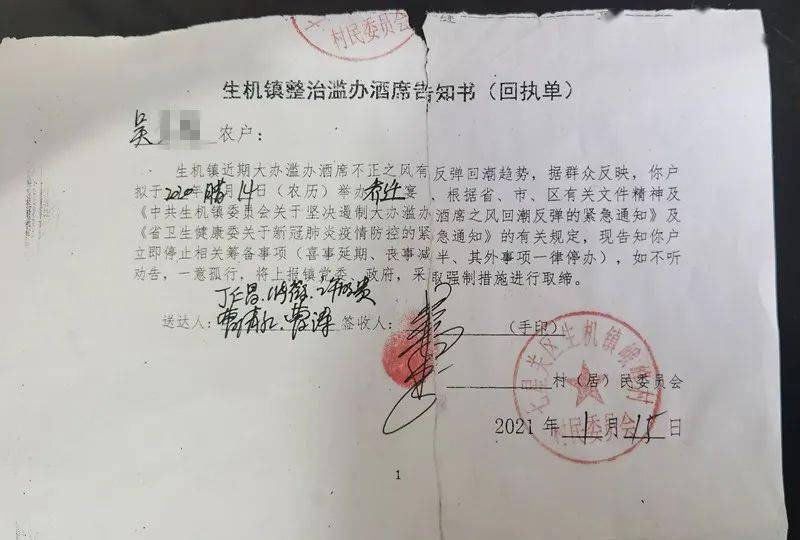 村民委员会
生机镇整治滥办酒席告知书（回执单）
吴 农户：
生机镇近期大办滥办酒席不正之风有反弹回潮趋势，据群众反映，你户
拟于2020年腊月14日（农历）举办乔迁宴、根据省、市、区有关文件精神及
《中共生机镇委员会关于坚决遏制大办滥办酒席之风回潮反弹的紧急通知》及
《省卫生健康委关于新冠肺炎疫情防控的紧急通知》的有关规定，现告知你户
立即停止相关筹备事项（喜事延期、丧事减半、其外事项一律停办），如不听
劝告，一意孤行，将上报镇党委、政府，采取强制措施进行取缔。
送达人： 签收人： （手印）
村（居）民委员会
七星关区生机镇 村
村民委员会
2021年 月 日
1